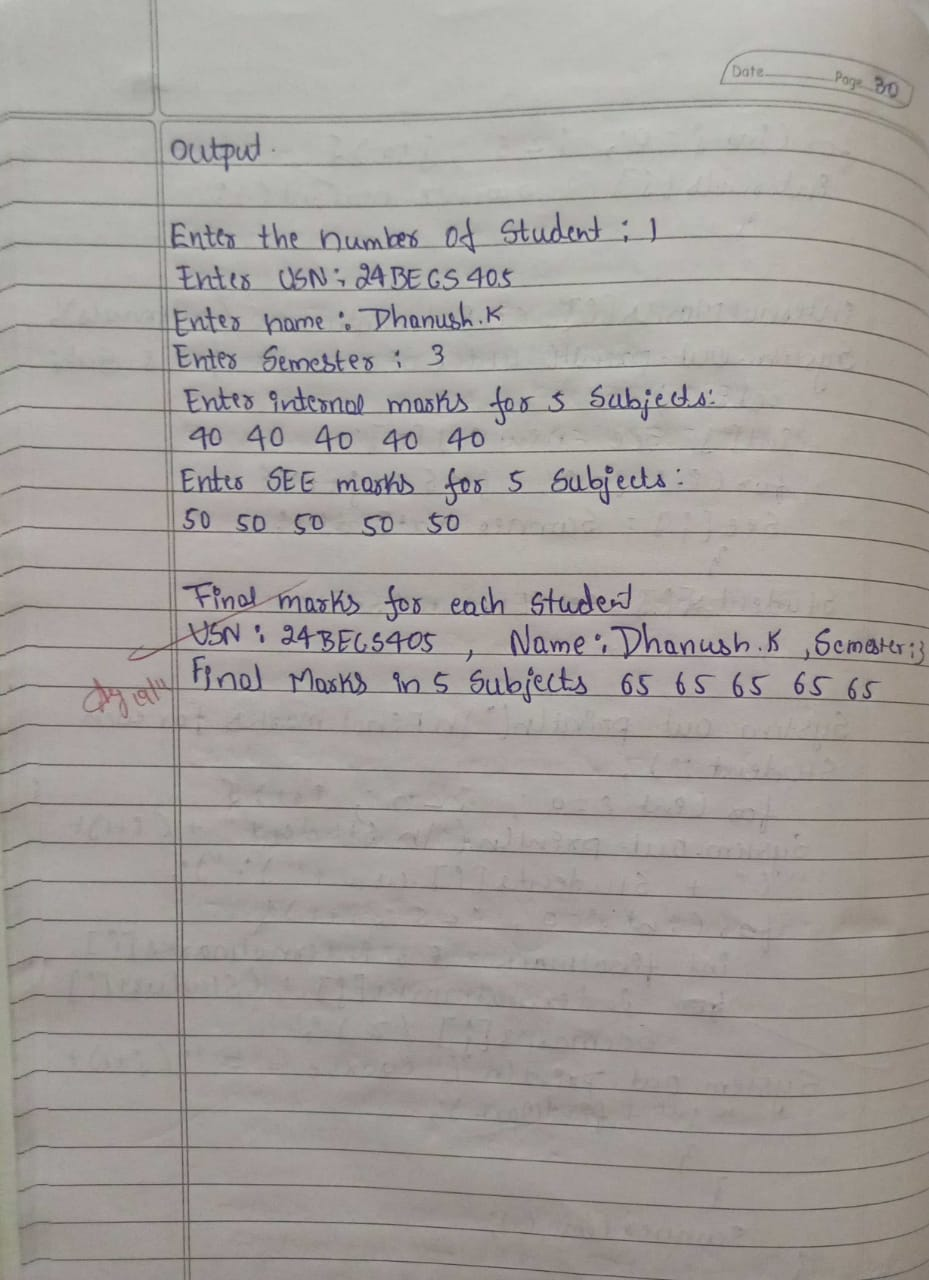 Date Page 30
Output.
Enter the number of Student : 1
Enter USN : 24BECS405
Enter name : Dhanush.K
Enter Semester : 3
Enter internal marks for 5 Subjects:
40 40 40 40 40
Enter SEE marks for 5 Subjects:
50 50 50 50 50
Final marks for each Student
USN : 24BECS405 , Name : Dhanush.K , Semester : 3
Final Marks in 5 Subjects 65 65 65 65 65